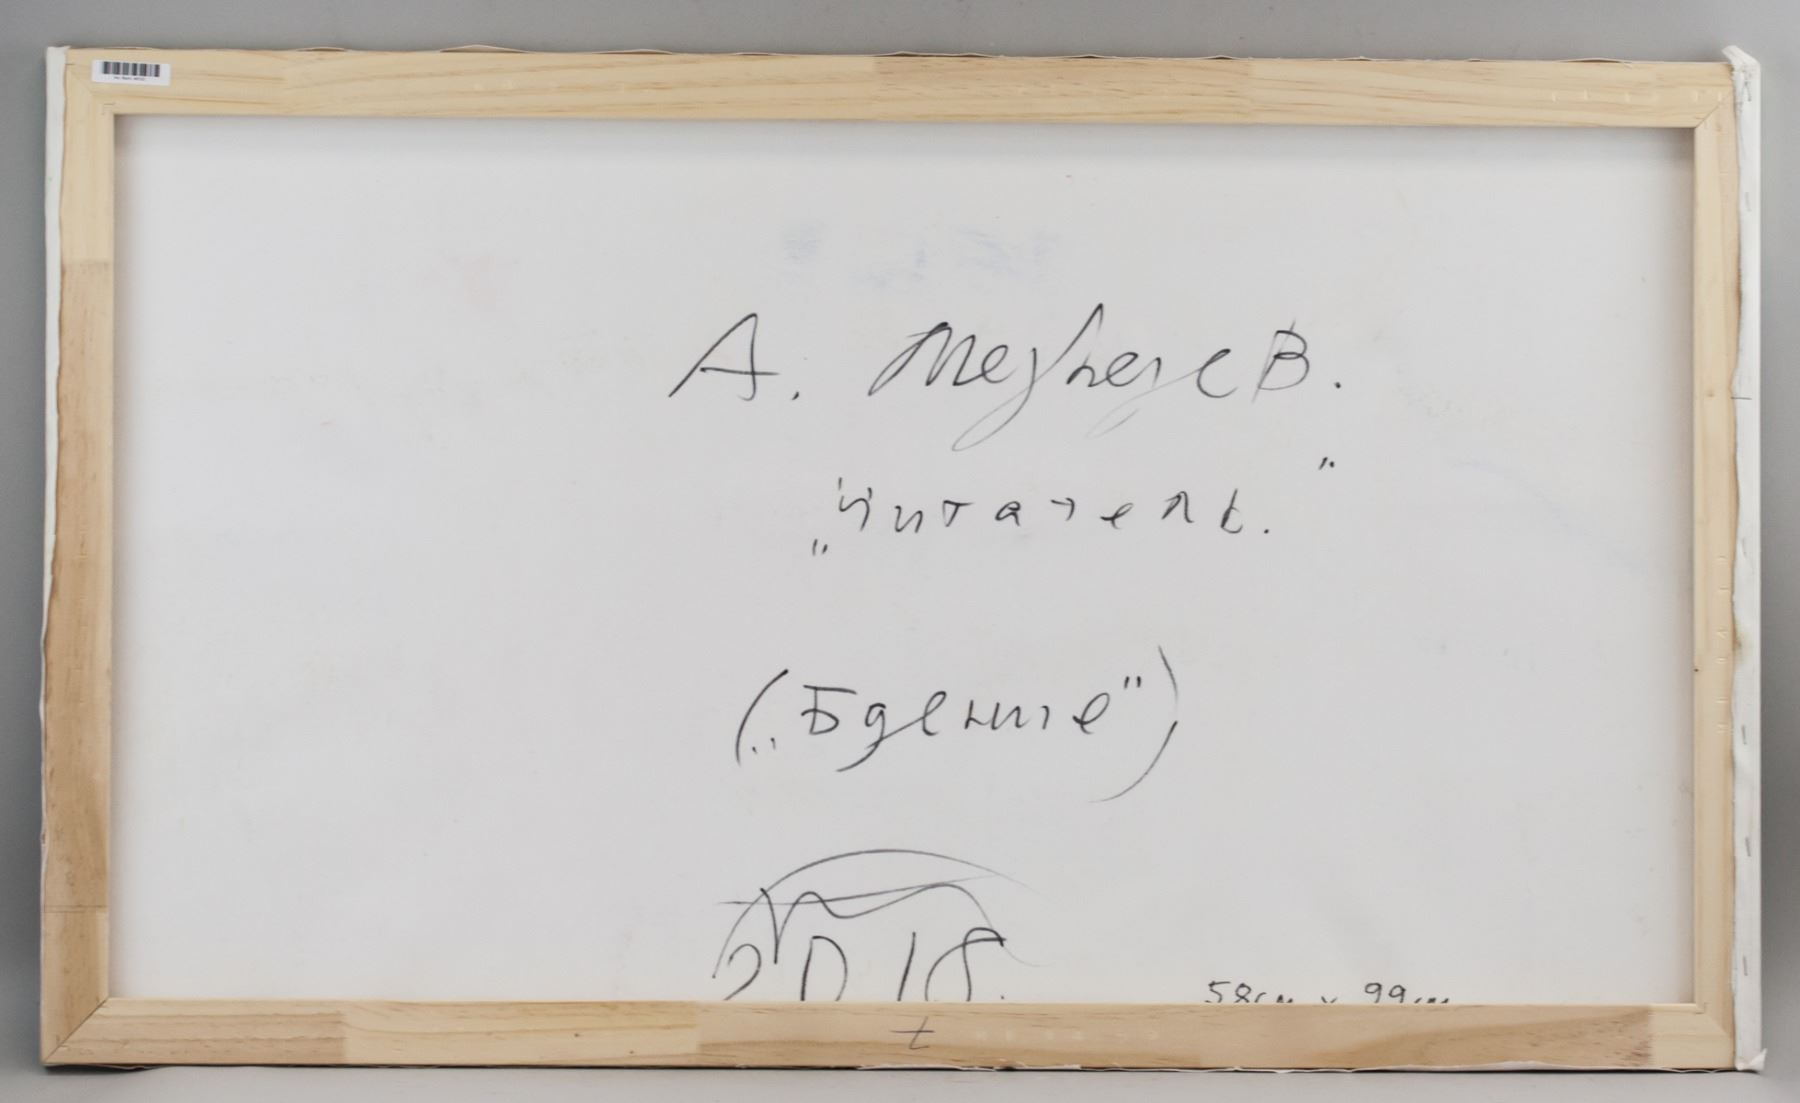 А. Медведев.
„Читатель."
(„Бдение")
2018.
58см x 99см